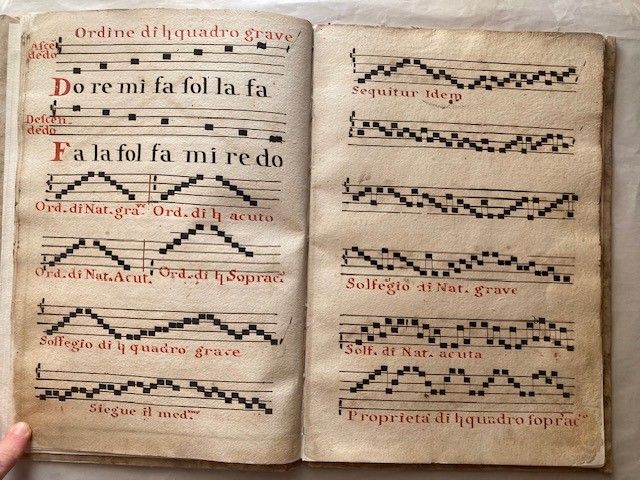 Ordine di ♮ quadro grave
Aſcē
dēdo
Do re mi fa ſol la fa
Deſcen
dēdo
Fa la ſol fa mi re do
Ord. di Nat. gra.ᵛᵉ Ord. di ♮ acuto
Ord. di Nat. Acut. Ord. di ♮ Soprac.
Solfegio di ♮ quadro grave
Siegue il med.ᵐᵒ
Sequitur Idem
Solfegio di Nat. grave
Solf. di Nat. acuta
Proprietà di ♮ quadro